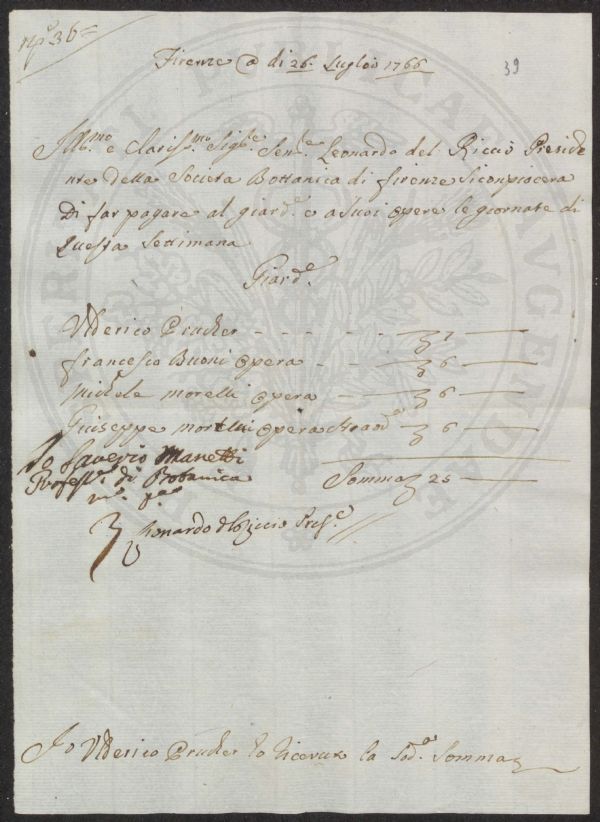 nº 36=
39
Firenze @ dì 26. Luglio 1766
Ill.mo e Claris.mo Sig.re Sen.re Leonardo del Riccio Preside
nte della Societa Bottanica di firenze Si conpiocera
Di far pagare al giard.e e a Suoi opere le giornate di
Questa Settimana
Giard.e
Ulderico Prucker - - - - - 7
francesco Buoni opera - - 6
Michele morelli opera - - 6
Giuseppe morelli opera 6
Io Saverio Manetti
Profess.e di Botanica
Somma 25
m.o p.a
Leonardo del Riccio Pres.e
Io Ulderico Prucker ho Riceuto la Sod.a Somma
PUBLICAE
AVGENDAE